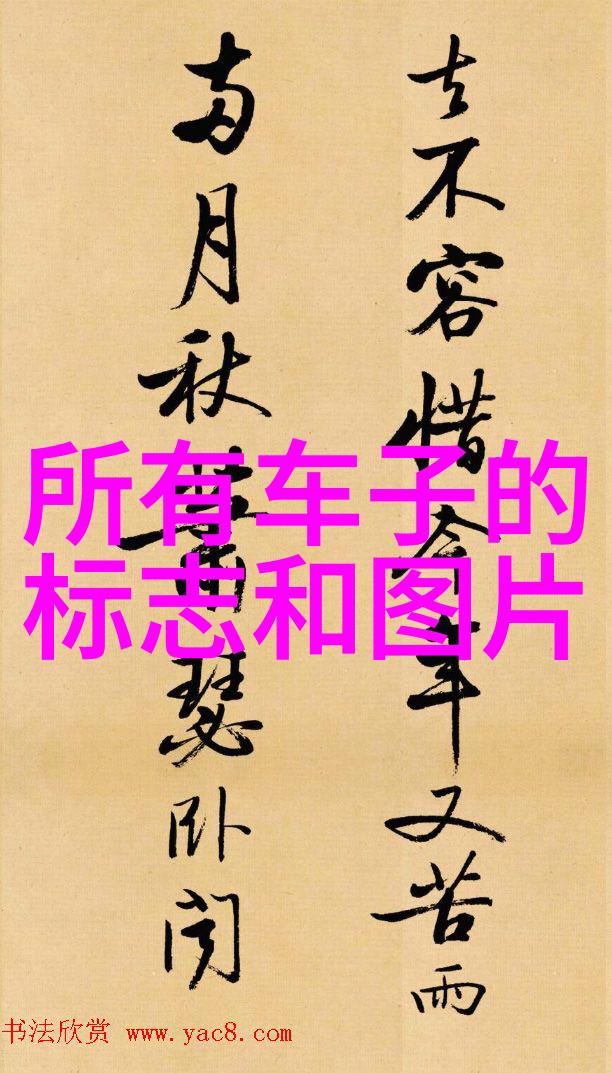 去不容惜今年又苦雨
两月秋蕭瑟卧闻
所有车子的
标志和图片
书法欣赏 www.yac8.com